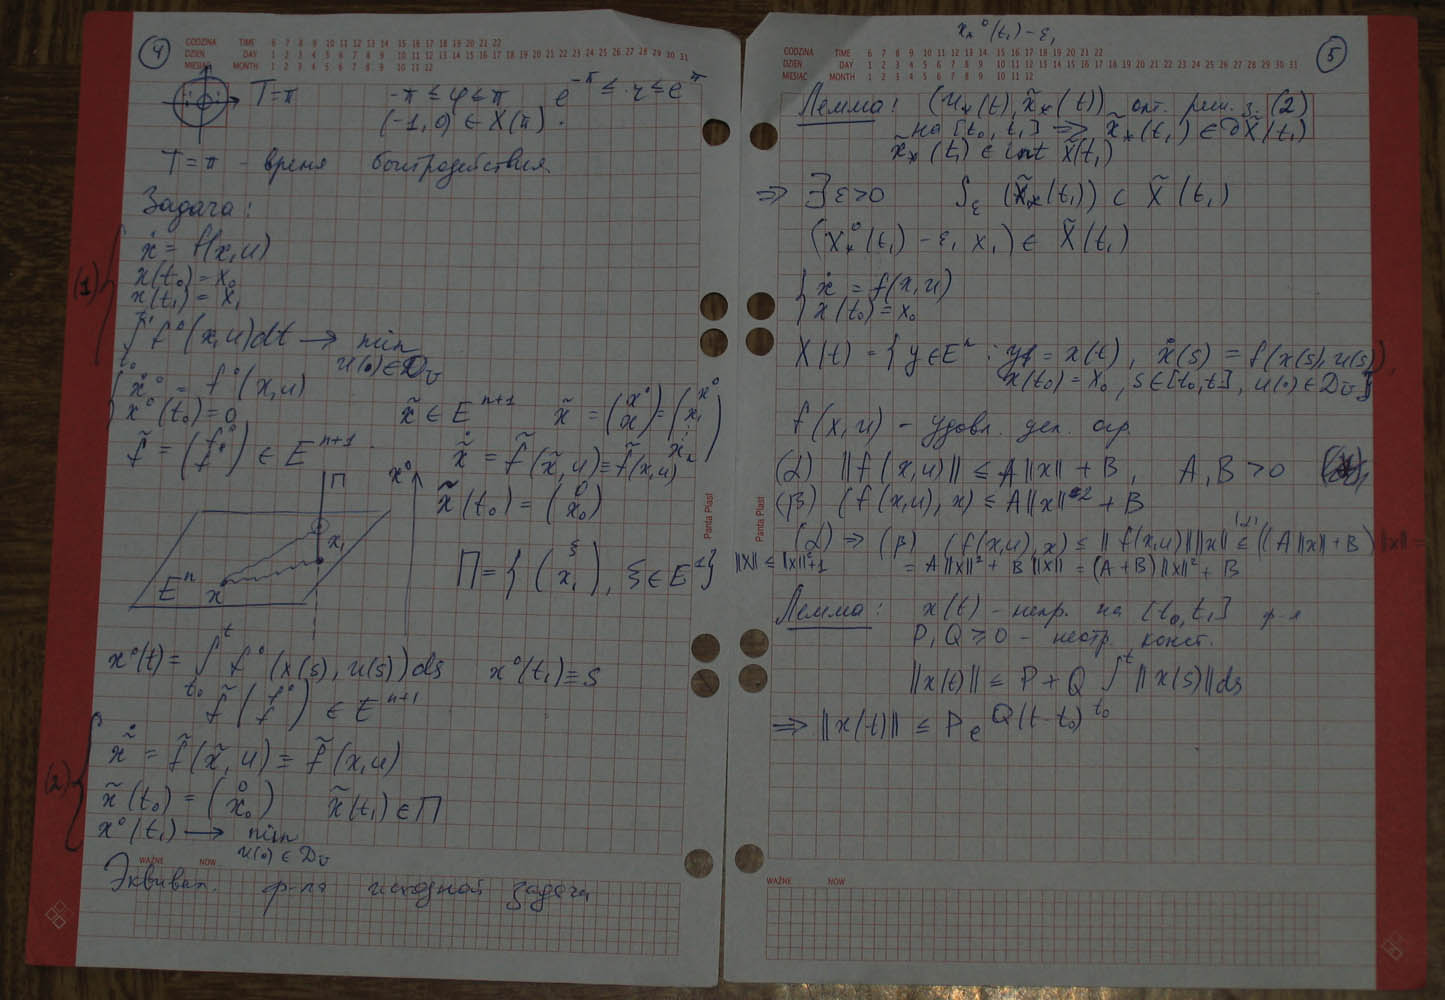 4
GODZINA TIME 6 7 8 9 10 11 12 13 14 15 16 17 18 19 20 21 22
DZIEŃ DAY 1 2 3 4 5 6 7 8 9 10 11 12 13 14 15 16 17 18 19 20 21 22 23 24 25 26 27 28 29 30 31
MIESIĄC MONTH 1 2 3 4 5 6 7 8 9 10 11 12
T=π -π ≤ φ ≤ π e^{-π} ≤ r ≤ e^{π}
(-1,0) ∈ X(π).
T=π - время быстродействия.
Задача:
(1)
ẋ = f(x,u)
x(t₀) = x₀
x(t₁) = x₁
∫_{t₀}^{t₁} f⁰(x,u)dt → min
u(·) ∈ D_U
ẋ⁰ = f⁰(x,u)
x⁰(t₀) = 0 x̃ ∈ E^{n+1} x̃ = (x⁰ x) = (x⁰ x₁ ⋮ xₙ)
f̃ = (f⁰ f) ∈ E^{n+1} x̃̇ = f̃(x̃,u) ≡ f̃(x,u)
x̃(t₀) = (0 x₀)
П x⁰
x₁
Eⁿ x
П = { (ξ x₁), ξ ∈ E¹}
x⁰(t) = ∫_{t₀}^{t} f⁰(x(s), u(s))ds x⁰(t₁) ≡ s
f̃ (f⁰ f) ∈ E^{n+1}
(2)
x̃̇ = f̃(x̃,u) ≡ f̃(x,u)
x̃(t₀) = (0 x₀) x̃(t₁) ∈ П
x⁰(t₁) → min
u(·) ∈ D_U
WAŻNE NOW
Эквивал. ф-ла исходной задачи
x⁰_*(t₁) - ε₁
5
GODZINA TIME 6 7 8 9 10 11 12 13 14 15 16 17 18 19 20 21 22
DZIEŃ DAY 1 2 3 4 5 6 7 8 9 10 11 12 13 14 15 16 17 18 19 20 21 22 23 24 25 26 27 28 29 30 31
MIESIĄC MONTH 1 2 3 4 5 6 7 8 9 10 11 12
Лемма: (u_*(t), x̃_*(t)) опт. реш. з. (2)
на [t₀, t₁] ⇒ x̃_*(t₁) ∈ ∂X̃(t₁)
x̃_*(t₁) ∈ int X̃(t₁)
⇒ ∃ε>0 S_ε (x̃_*(t₁)) ⊂ X̃(t₁)
(x⁰_*(t₁) - ε₁, x₁) ∈ X̃(t₁)
{ ẋ = f(x,u)
x(t₀) = x₀
X(t) = { y ∈ Eⁿ : y = x(t), ẋ(s) = f(x(s), u(s)),
x(t₀) = x₀, s ∈ [t₀,t], u(·) ∈ D_U }
f(x,u) - удовл. доп. огр.
(α) ||f(x,u)|| ≤ A||x|| + B, A, B > 0
(β) (f(x,u), x) ≤ A||x||² + B
(α) ⇒ (β) (f(x,u), x) ≤ ||f(x,u)|| ||x|| ≤^{(α)} (A||x|| + B) ||x|| =
||x|| ≤ ||x||²+1 = A||x||² + B||x|| = (A+B)||x||² + B
Лемма: x(t) - непр. на [t₀, t₁] ф-я
P, Q ≥ 0 - неотр. конст.
||x(t)|| ≤ P + Q ∫_{t₀}^{t} ||x(s)||ds
⇒ ||x(t)|| ≤ P e^{Q(t-t₀)}
WAŻNE NOW
Panta Plast
Panta Plast